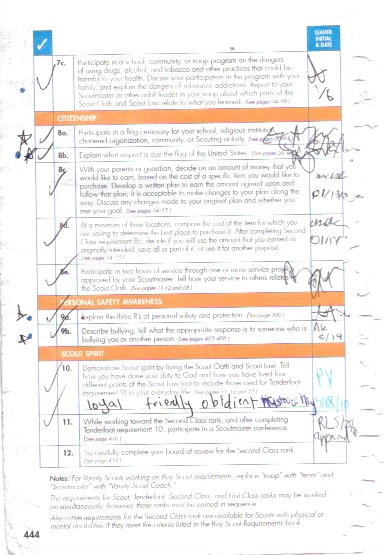 LEADER
INITIAL
& DATE
7c. Participate in a school, community, or troop program on the dangers
of using drugs, alcohol, and tobacco and other practices that could be
harmful to your health. Discuss your participation in the program with your
family, and explain the dangers of substance addictions. Report to your
Scoutmaster or other adult leader in your troop about which parts of the
Scout Oath and Scout Law relate to what you learned.
CITIZENSHIP
8a. Participate in a flag ceremony for your school, religious institution,
chartered organization, community, or Scouting activity.
8b. Explain what respect is due the flag of the United States.
8c. With your parents or guardian, decide on an amount of money that you
would like to earn, based on the cost of a specific item you would like to
purchase. Develop a written plan to earn the amount agreed upon and
follow that plan; it is acceptable to make changes to your plan along the
way. Discuss any changes made to your original plan and whether you
met your goal.
8d. At a minimum of three locations, compare the cost of the item for which you
are saving to determine the best place to purchase it. After completing Second
Class requirement 8c, decide if you will use the amount that you earned as
originally intended, save all or part of it, or use it for another purpose.
8e. Participate in two hours of service through one or more service projects
approved by your Scoutmaster. Tell how your service to others relates to
the Scout Oath.
PERSONAL SAFETY AWARENESS
9a. Explain the three R's of personal safety and protection.
9b. Describe bullying; tell what the appropriate response is to someone who is
bullying you or another person.
SCOUT SPIRIT
10. Demonstrate Scout spirit by living the Scout Oath and Scout Law. Tell
how you have done your duty to God and how you have lived four
different points of the Scout Law (not to include those used for Tenderfoot
requirement 9) in your everyday life.
loyal friendly obidient
11. While working toward the Second Class rank, and after completing
Tenderfoot requirement 10, participate in a Scoutmaster conference.
12. Successfully complete your board of review for the Second Class rank.
Notes: For Varsity Scouts working on Boy Scout requirements, replace "troop" with "team" and
"Scoutmaster" with "Varsity Scout Coach."
The requirements for Scout, Tenderfoot, Second Class, and First Class ranks may be worked
on simultaneously; however, these ranks must be earned in sequence.
Alternative requirements for the Second Class rank are available for Scouts with physical or
mental disabilities if they meet the criteria listed in the Boy Scout Requirements book.
444